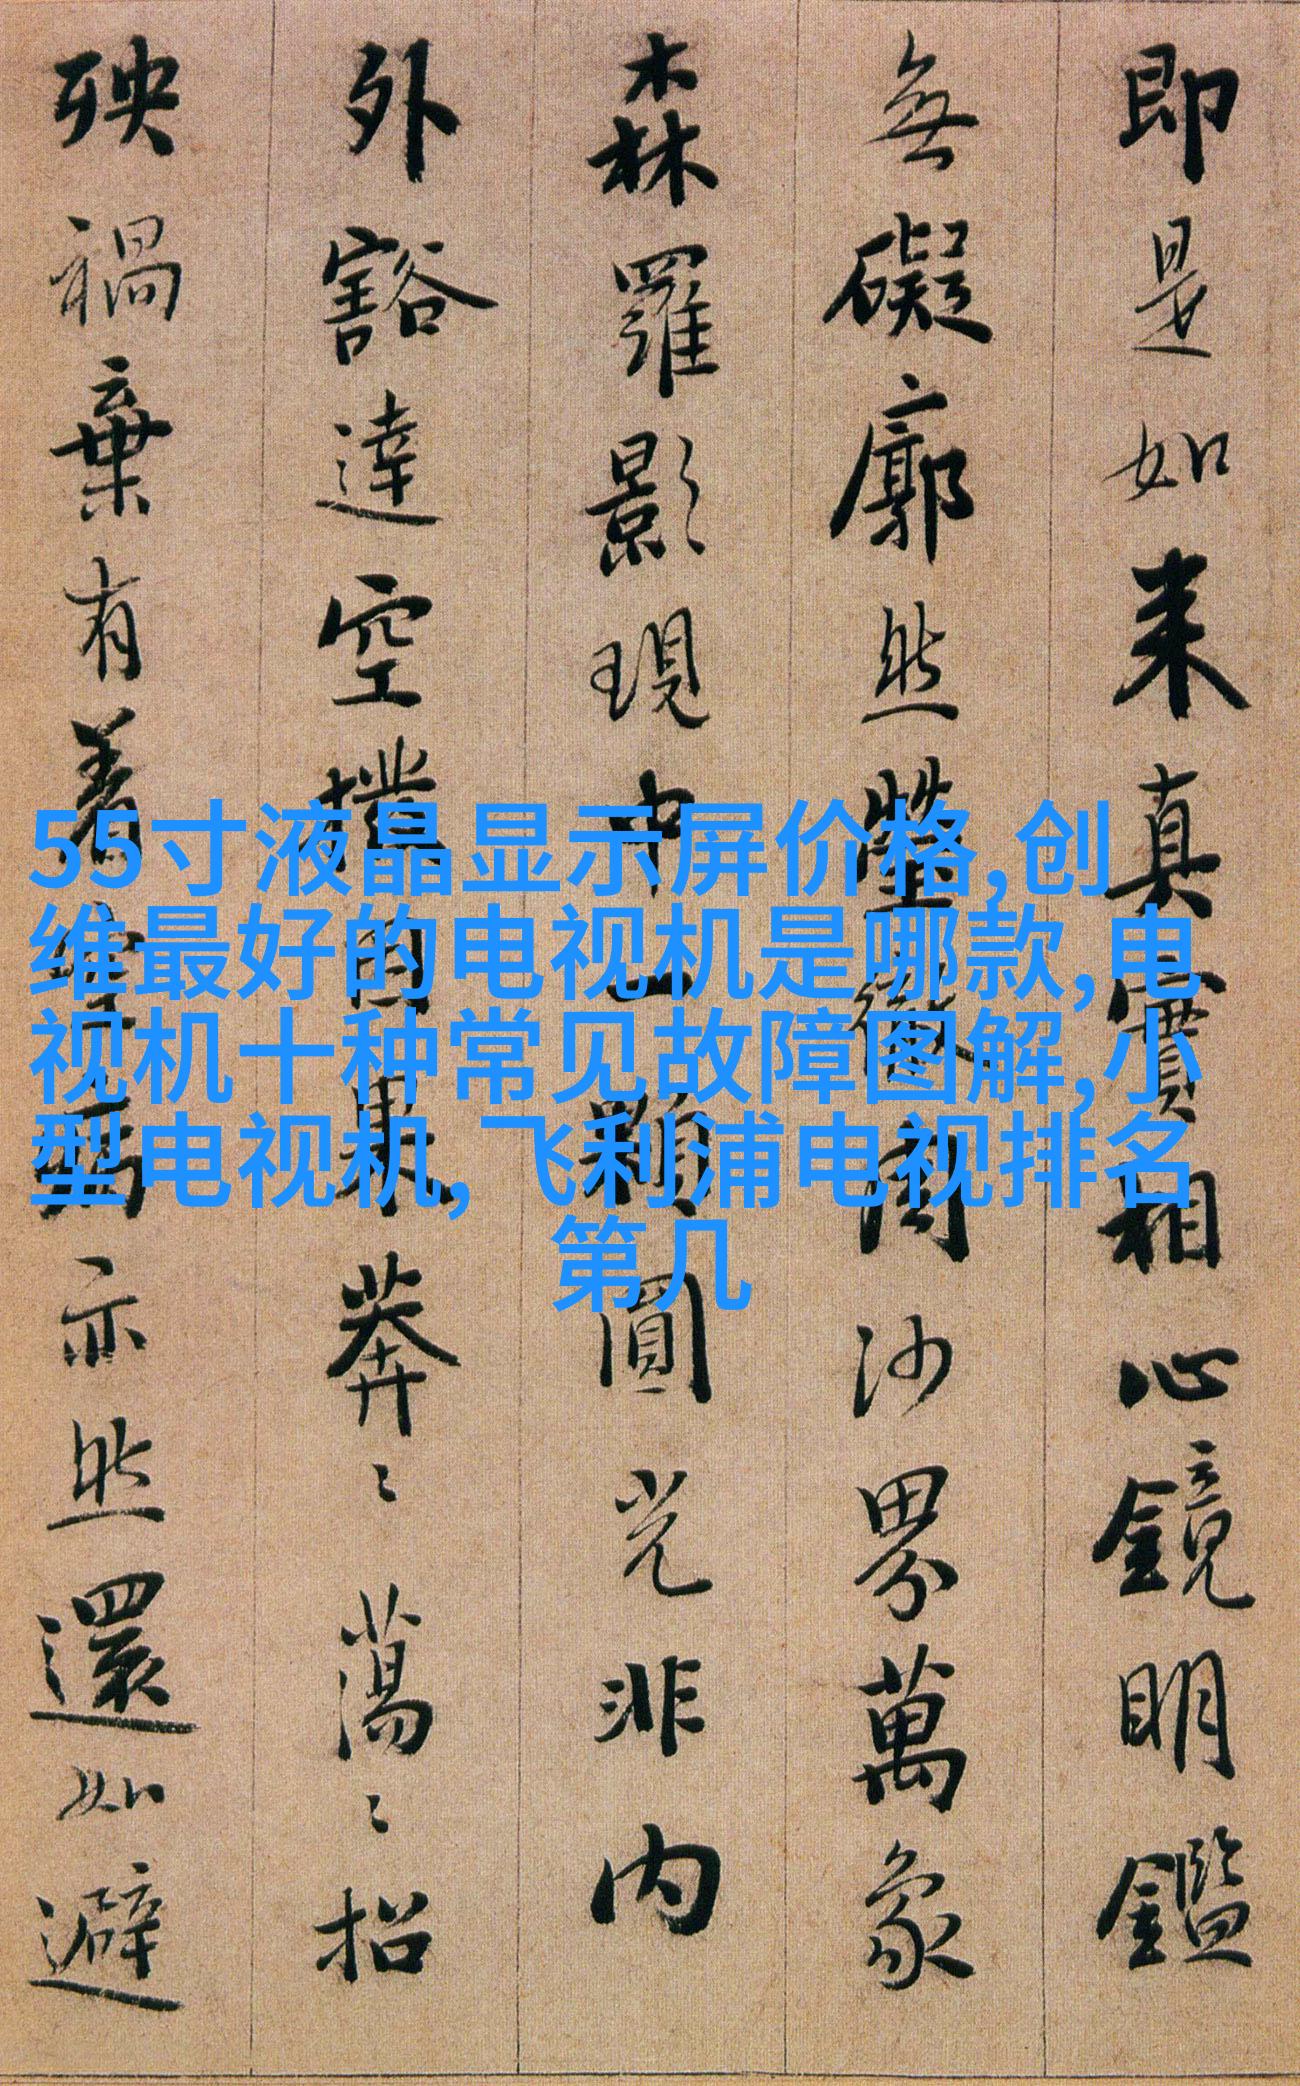 即是如来真實相心鏡明鑑
無礙廓然瑩徹周沙界萬象
森羅影現中一顆圓光非内
外豁達空撥因果莽〻蕩〻招
殃禍棄有着空病亦然還如避
55寸液晶显示屏价格,创
维最好的电视机是哪款,电
视机十种常见故障图解,小
型电视机, 飞利浦电视排名
第几